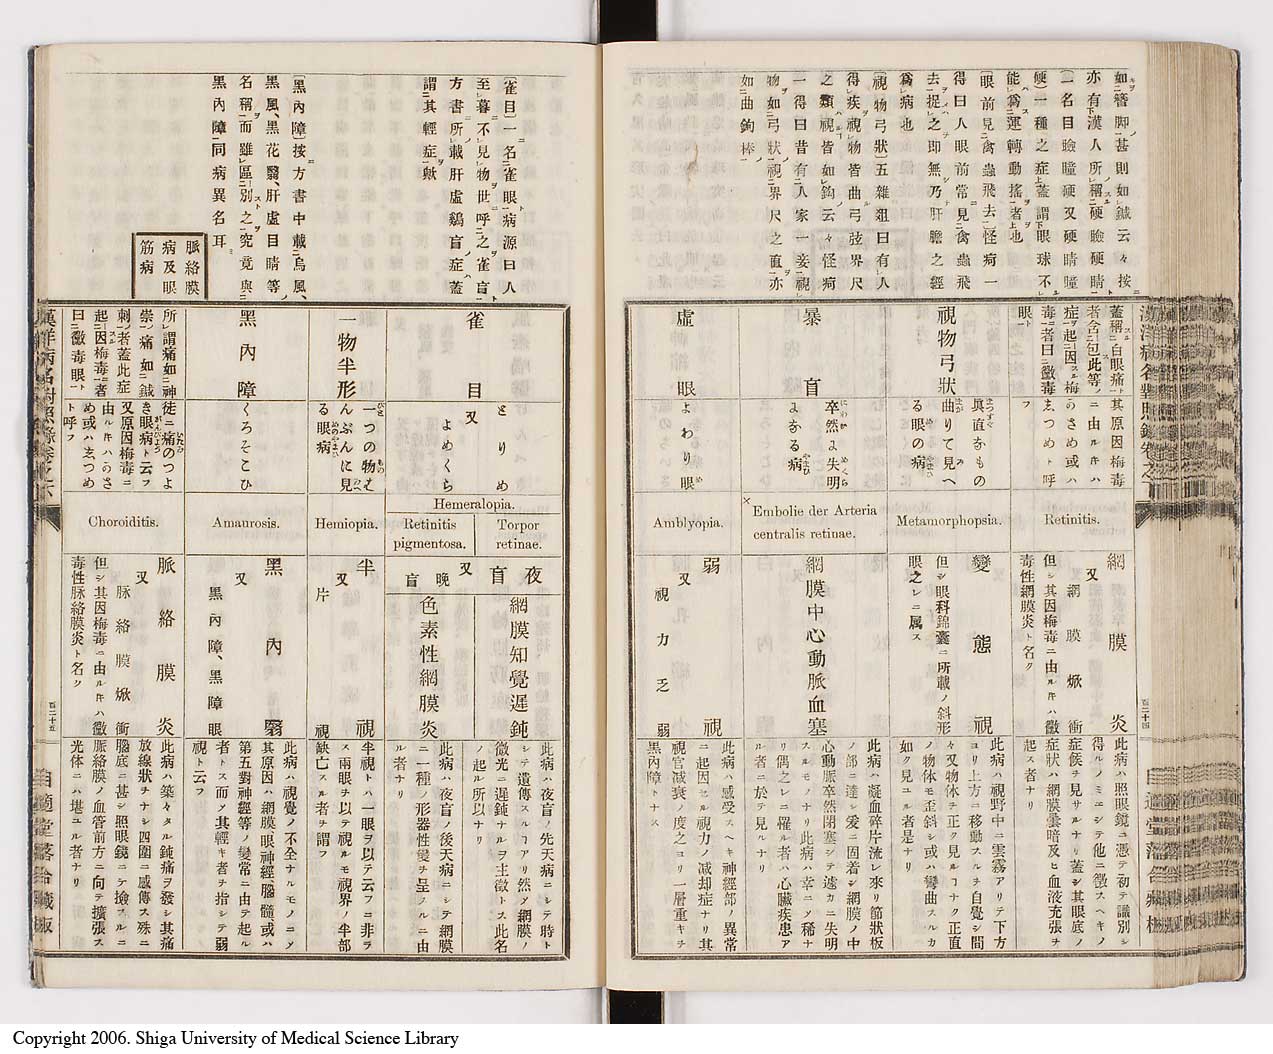 如簪脚甚則如鍼云々按
亦有漢人所稱硬瞼硬睛
一名目瞼瞳硬又硬睛瞳
硬一種之症蓋謂眼球不
能爲運轉動搖者也
〔眼前見禽蟲飛去〕怪疴一
得曰人眼前常見禽蟲飛
去捉之即無乃肝膽之經
爲病也
〔視物弓狀〕五雜爼曰有人
得疾視物皆曲弓弦界尺
之類視皆如鈎云々怪疴
一得曰昔有人家一妾視
物如弓狀視界尺之直亦
如曲鉤棒
蓋稱白眼痛
者含包此等
症起因梅
毒者曰黴毒
眼
其原因梅毒
ニ由ルキハ
かさめ或ハ
まつめト呼
フ
Retinitis.
網膜炎
又網膜焮衝
但シ其因梅毒ニ由ルキハ黴
毒性網膜炎ト名ク
此病ハ照眼鏡ニ憑テ初テ識別シ
得ルノミニシテ他ニ徴スヘキノ
症候ヲ見サルナリ蓋シ其眼底ノ
症狀ハ網膜雲暗及ヒ血液充張ヲ
起ス者ナリ
視物弓狀
眞直なもの
曲りて見へ
る眼の病
Metamorphopsia.
變態視
但シ眼科錦囊ニ所載ノ斜形
眼之レニ屬ス
此病ハ視野中ニ雲霧アリテ下方
ヨリ上方ニ移動スルヲ自覺シ間
々又物体ヲ正ク見ルコナク正直
ノ物体モ歪斜シ或ハ彎曲スルカ
如ク見ユル者是ナリ
暴盲
卒然に失明
になる病
Embolie der Arteria
centralis retinae.
網膜中心動脈血塞
此病ハ凝血碎片流レ來リ篩狀板
ノ部ニ達シ爰ニ固着シ網膜ノ中
心動脈卒然閉塞シテ遽カニ失明
スルモノナリ此病ハ幸ニノ稀ナ
リ偶之レニ罹ル者ハ心臟疾患ア
ル者ニ於テ見ルナリ
虛眼
よわり眼
Amblyopia.
弱視
又視力乏弱
此病ハ感受スヘキ神經部ノ異常
ニ起因セル視力ノ減却症ナリ其
視官減衰ノ度之ヨリ一層重キヲ
黒內障トナス
百二十四
〔雀目〕一名雀眼病源曰人
至暮不見物世呼之雀盲
方書所載肝虛鷄盲症蓋
謂其輕症歟
〔黒內障〕按方書中載烏風、
黒風、黒花翳、肝虛目睛等
名稱而雖區別之究竟與
黒內障同病異名耳
脈絡膜
病及眼
筋病
雀目
とりめ
又よめくら
Hemeralopia.
Torpor
retinae.
Retinitis
pigmentosa.
夜盲
又晩盲
網膜知覺遲鈍
色素性網膜炎
此病ハ夜盲ノ先天病ニシテ時ト
シテ遺傳スルコアリ然ノ網膜ノ
微光ニ遲鈍ナルヲ主徴トス此名
ノ起ル所以ナリ
此病ハ夜盲ノ後天病ニシテ網膜
ニ一種ノ形器性變ヲ呈ノルニ由
ル者ナリ
一物半形
一つの物を
んぶんに見
る眼病
Hemiopia.
半視
又片視
半視トハ一眼ヲ以テ云フニ非ラ
ス兩眼ヲ以テ視ルモ視界ノ半部
缺亡スル者ヲ謂フ
黒內障
くろそこひ
Amaurosis.
黒內翳
又黒內障、黒障眼
此病ハ視覺ノ不全ナルモノニソ
其原因ハ網膜眼神經腦髓或ハ
第五對神經等ノ變常ニ由テ起ル
者トス而ノ其輕キ者ヲ指シテ弱
視ト云フ
所謂痛如神
祟痛如鍼
刺者蓋此症
起因梅毒者
曰黴毒眼
徒ニ痛のつよ
き眼病ト云フ
又原因梅毒ニ
由ルキハかさ
め或ハまつめ
ト呼フ
Choroiditis.
脈絡膜炎
又脈絡膜焮衝
但シ其因梅毒ニ由ルキハ黴
毒性脈絡膜炎ト名ク
此病ハ築々タル鈍痛ヲ發シ其痛
放線狀ヲナシ四圍ニ感傳ス殊ニ
腦底ニ甚シ照眼鏡ニテ撿スルニ
脈絡膜ノ血管前方ニ向テ擴張ス
光体ニハ堪ユル者ナリ
漢洋病名對照錄卷之六
百二十五
自適堂落合藏版
Copyright 2006. Shiga University of Medical Science Library